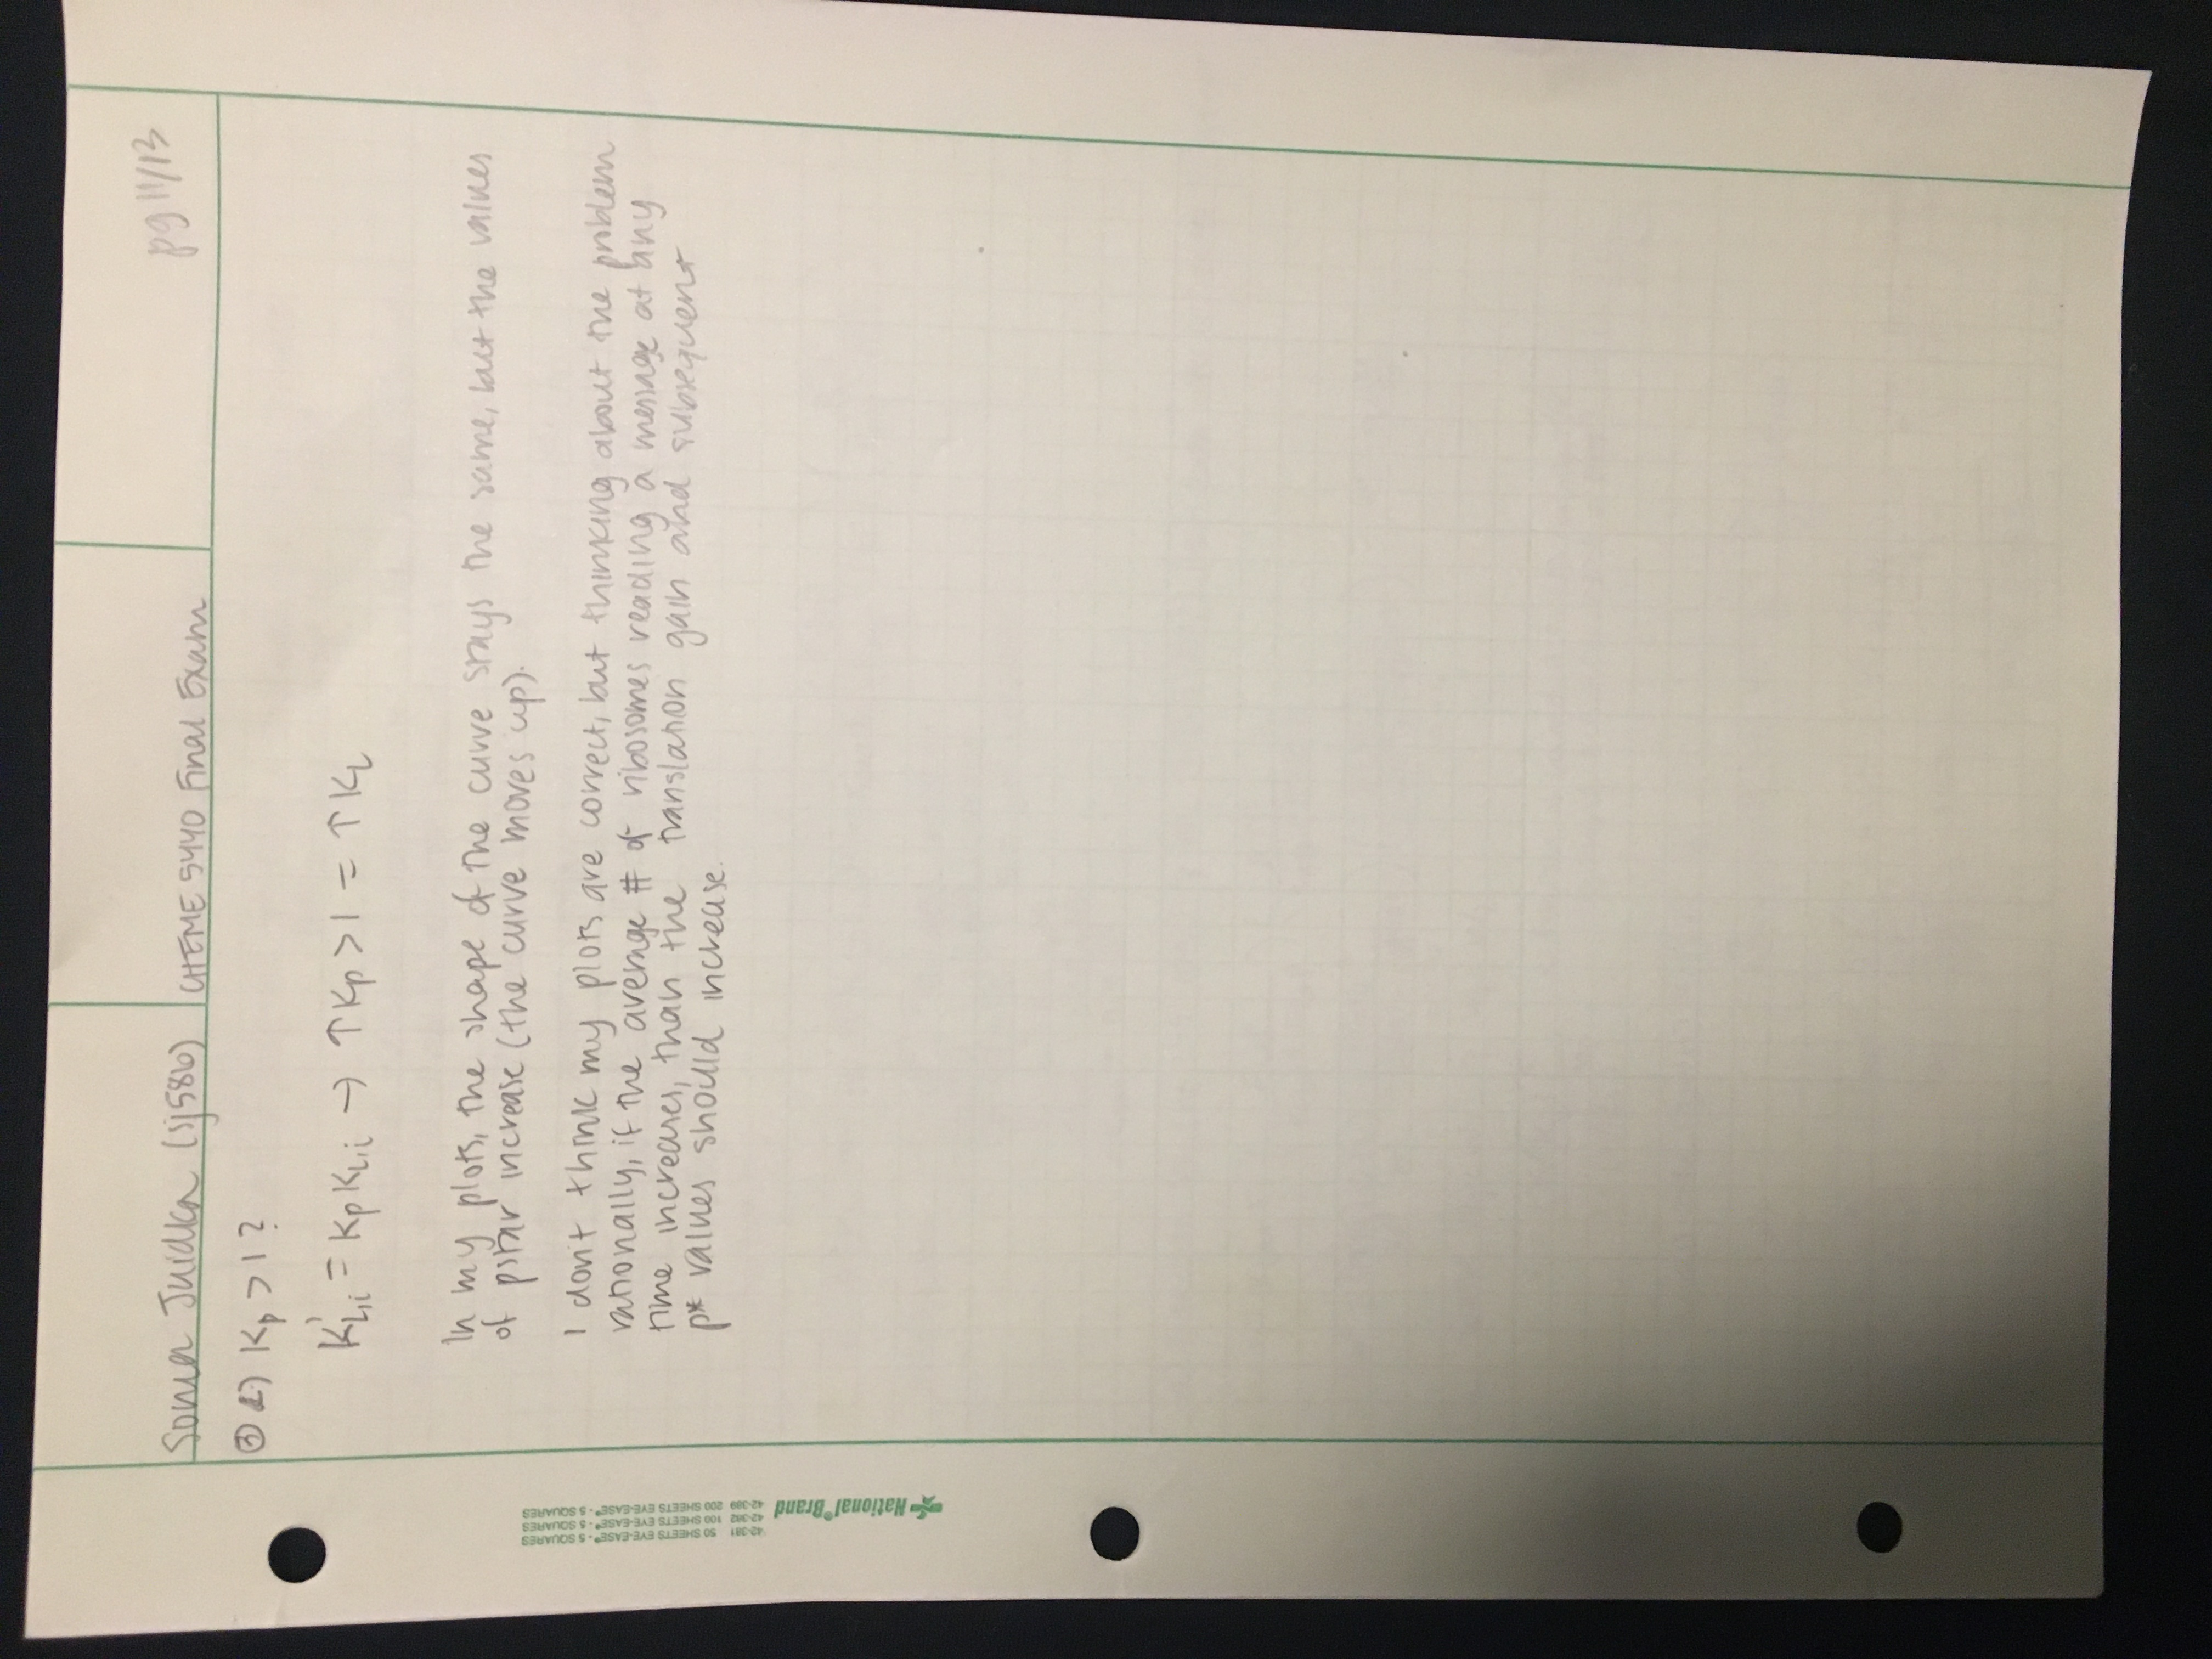 Soma Juidka (sj586) CHEME 5440 Final Exam pg 11/13
③ Kp > 1?
K'L,i = Kp KL,i → ↑Kp > 1 = ↑KL
In my plots, the shape of the curve stays the same, but the values
of pstar increase (the curve moves up).
I don't think my plots are correct, but thinking about the problem
rationally, if the average # of ribosomes reading a message at any
time increases, than the translation gain and subsequent
p* values should increase.
42-381 50 SHEETS EYE-EASE® - 5 SQUARES
42-382 100 SHEETS EYE-EASE® - 5 SQUARES
42-389 200 SHEETS EYE-EASE® - 5 SQUARES
National®Brand